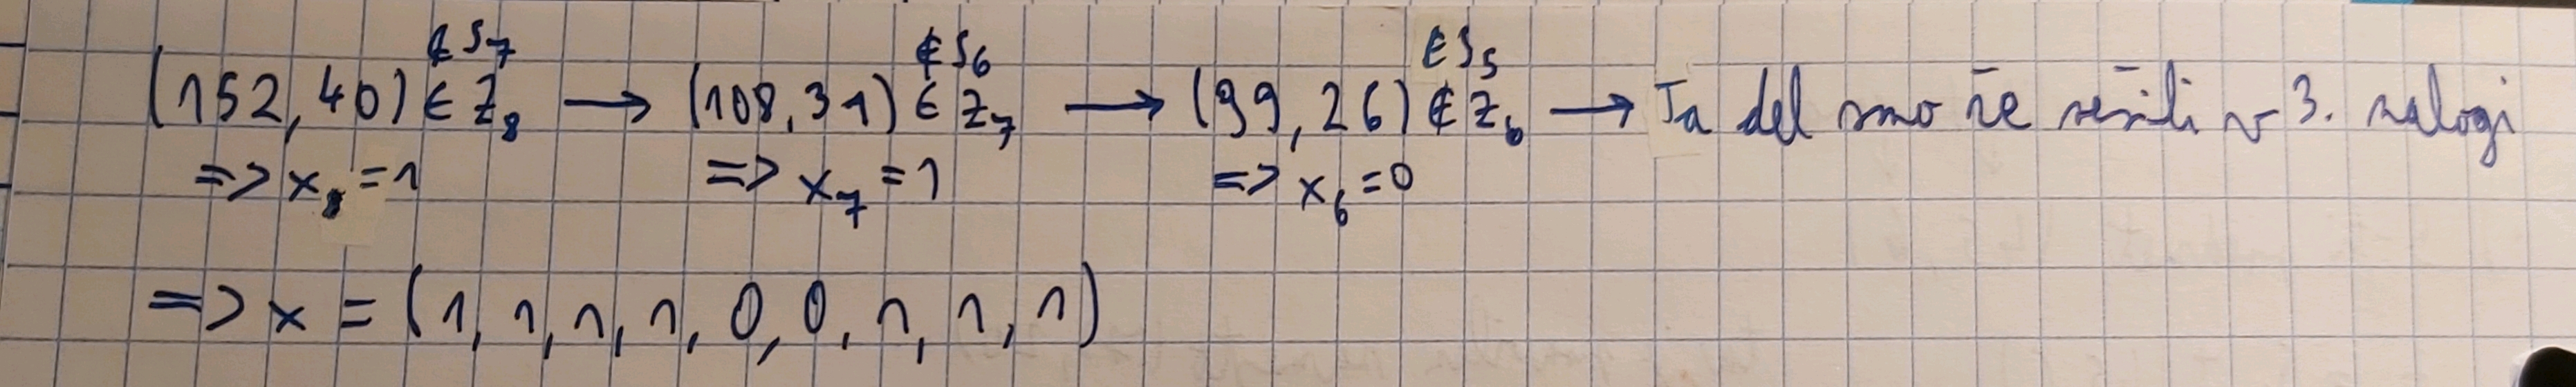 ∉ S₇ ∉ S₆ ∈ S₅
(152,40) ∈ Z₈ → (108,31) ∈ Z₇ → (99,26) ∉ Z₆ → Ta del smo že rešili v 3. nalogi
=> x₈ = 1 => x₇ = 1 => x₆ = 0
=> x = (1, 1, 1, 1, 0, 0, 1, 1, 1)